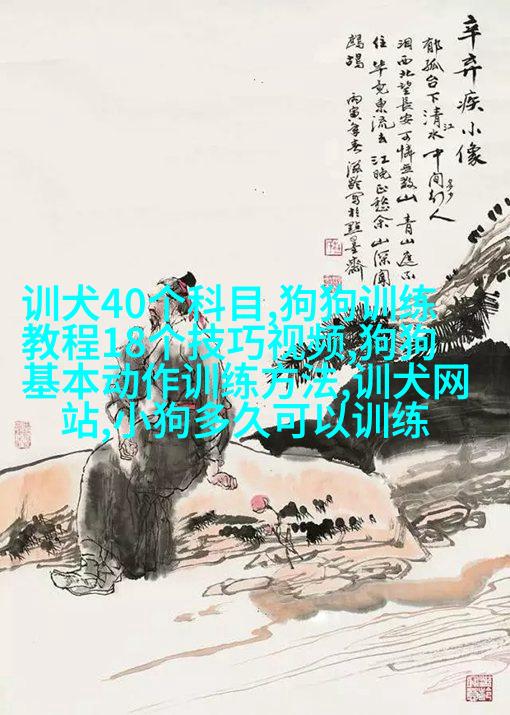 辛弃疾小像
郁孤台下清江水 中间多少行人
泪西北望長安可憐無数山 青山遮不
住 毕竟東流去 江晚正愁余 山深闻
鹧鸪 丙寅年春滋龄写於點墨齋
训犬40个科目,狗狗训练
教程18个技巧视频,狗狗
基本动作训练方法,训犬网
站,小狗多久可以训练